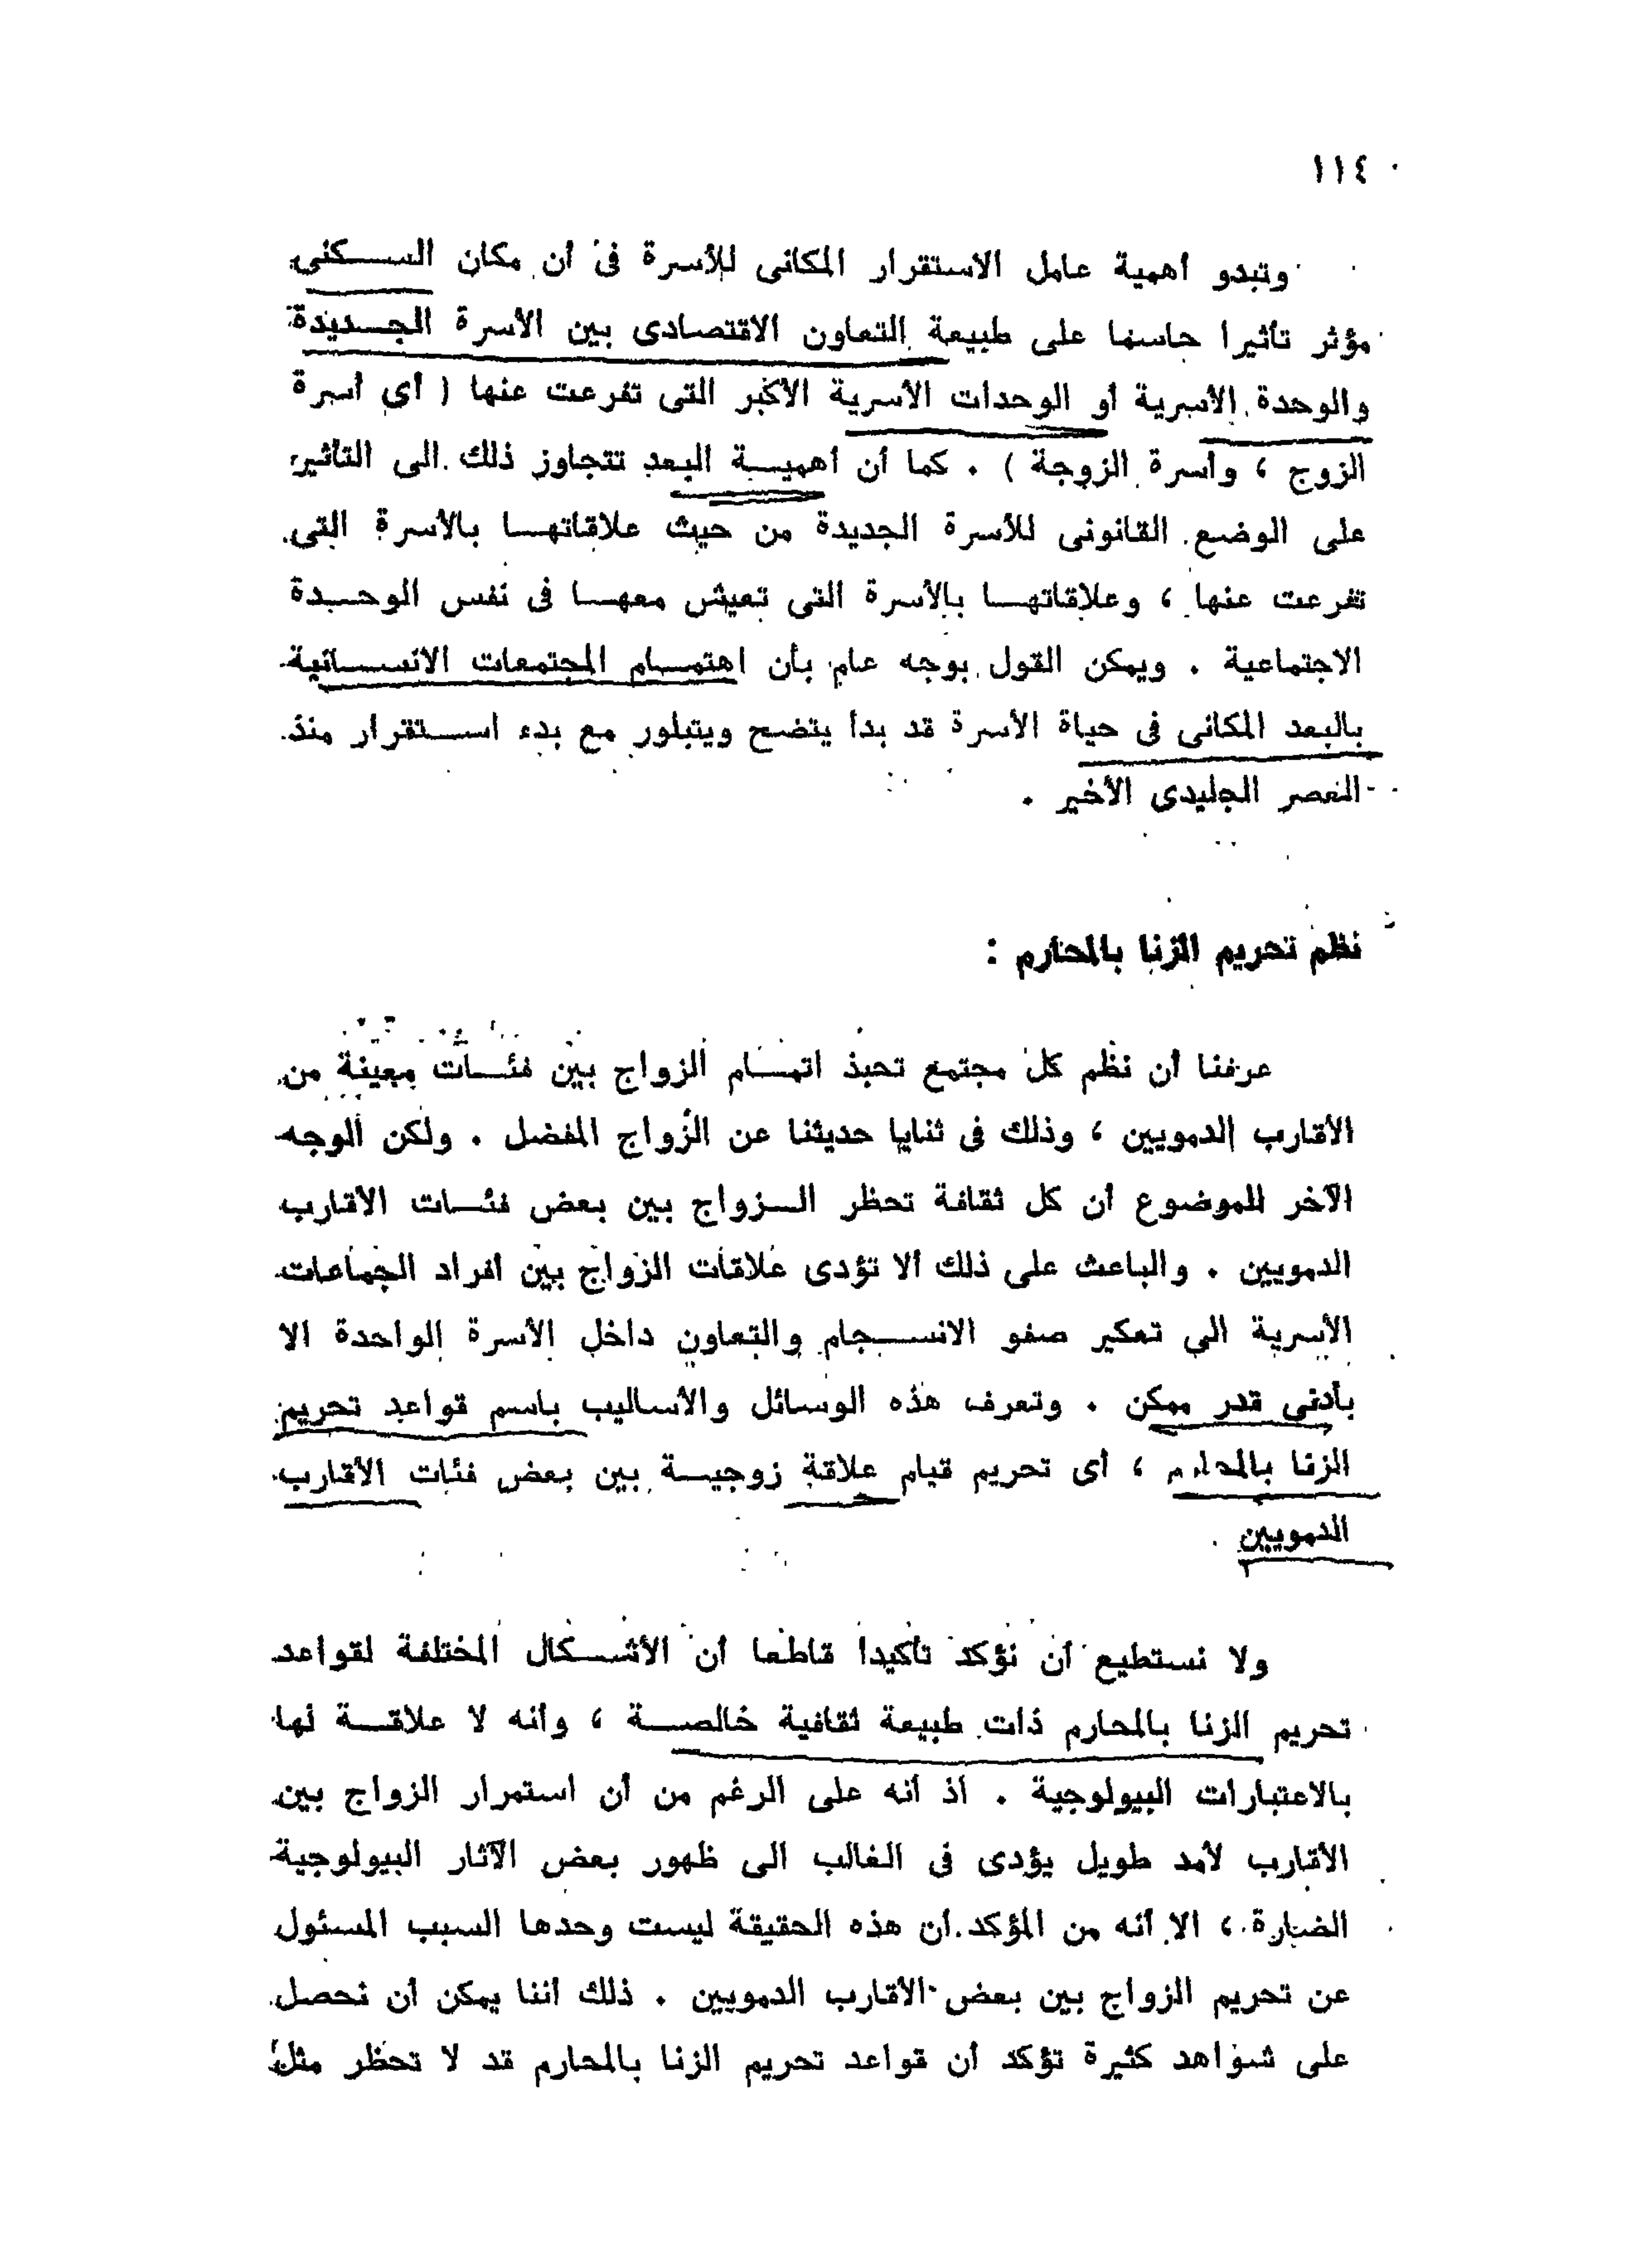 ١١٤
وتبدو أهمية عامل الاستقرار المكانى للأسرة فى أن مكان السكنى
مؤثر تأثيرا حاسما على طبيعة التعاون الاقتصادى بين الأسرة الجديدة
والوحدة الأسرية أو الوحدات الأسرية الأكبر التى تفرعت عنها ( أى أسرة
الزوج ، وأسرة الزوجة ) . كما أن أهمية البعد تتجاوز ذلك الى التأثير
على الوضع القانونى للأسرة الجديدة من حيث علاقاتها بالأسرة التى
تفرعت عنها ، وعلاقاتها بالأسرة التى تعيش معها فى نفس الوحدة
الاجتماعية . ويمكن القول بوجه عام بأن اهتمام المجتمعات الانسانية
بالبعد المكانى فى حياة الأسرة قد بدأ يتضح ويتبلور مع بدء استقرار منذ
العصر الجليدى الأخير .
نظم تحريم الزنا بالمحارم :
عرفنا أن نظم كل مجتمع تحبذ اتمام الزواج بين فئات معينة من
الأقارب الدمويين ، وذلك فى ثنايا حديثنا عن الزواج المفضل . ولكن الوجه
الآخر للموضوع أن كل ثقافة تحظر الزواج بين بعض فئات الأقارب
الدمويين . والباعث على ذلك ألا تؤدى علاقات الزواج بين أفراد الجماعات
الأسرية الى تعكير صفو الانسجام والتعاون داخل الأسرة الواحدة الا
بأدنى قدر ممكن . وتعرف هذه الوسائل والأساليب باسم قواعد تحريم
الزنا بالمحارم ، أى تحريم قيام علاقة زوجية بين بعض فئات الأقارب
الدمويين .
ولا نستطيع أن نؤكد تأكيدا قاطعا أن الأشكال المختلفة لقواعد
تحريم الزنا بالمحارم ذات طبيعة ثقافية خالصة ، وأنه لا علاقة لها
بالاعتبارات البيولوجية . اذ أنه على الرغم من أن استمرار الزواج بين
الأقارب لأمد طويل يؤدى فى الغالب الى ظهور بعض الآثار البيولوجية
الضارة ، الا أنه من المؤكد أن هذه الحقيقة ليست وحدها السبب المسئول
عن تحريم الزواج بين بعض الأقارب الدمويين . ذلك أننا يمكن أن نحصل
على شواهد كثيرة تؤكد أن قواعد تحريم الزنا بالمحارم قد لا تحظر مثل